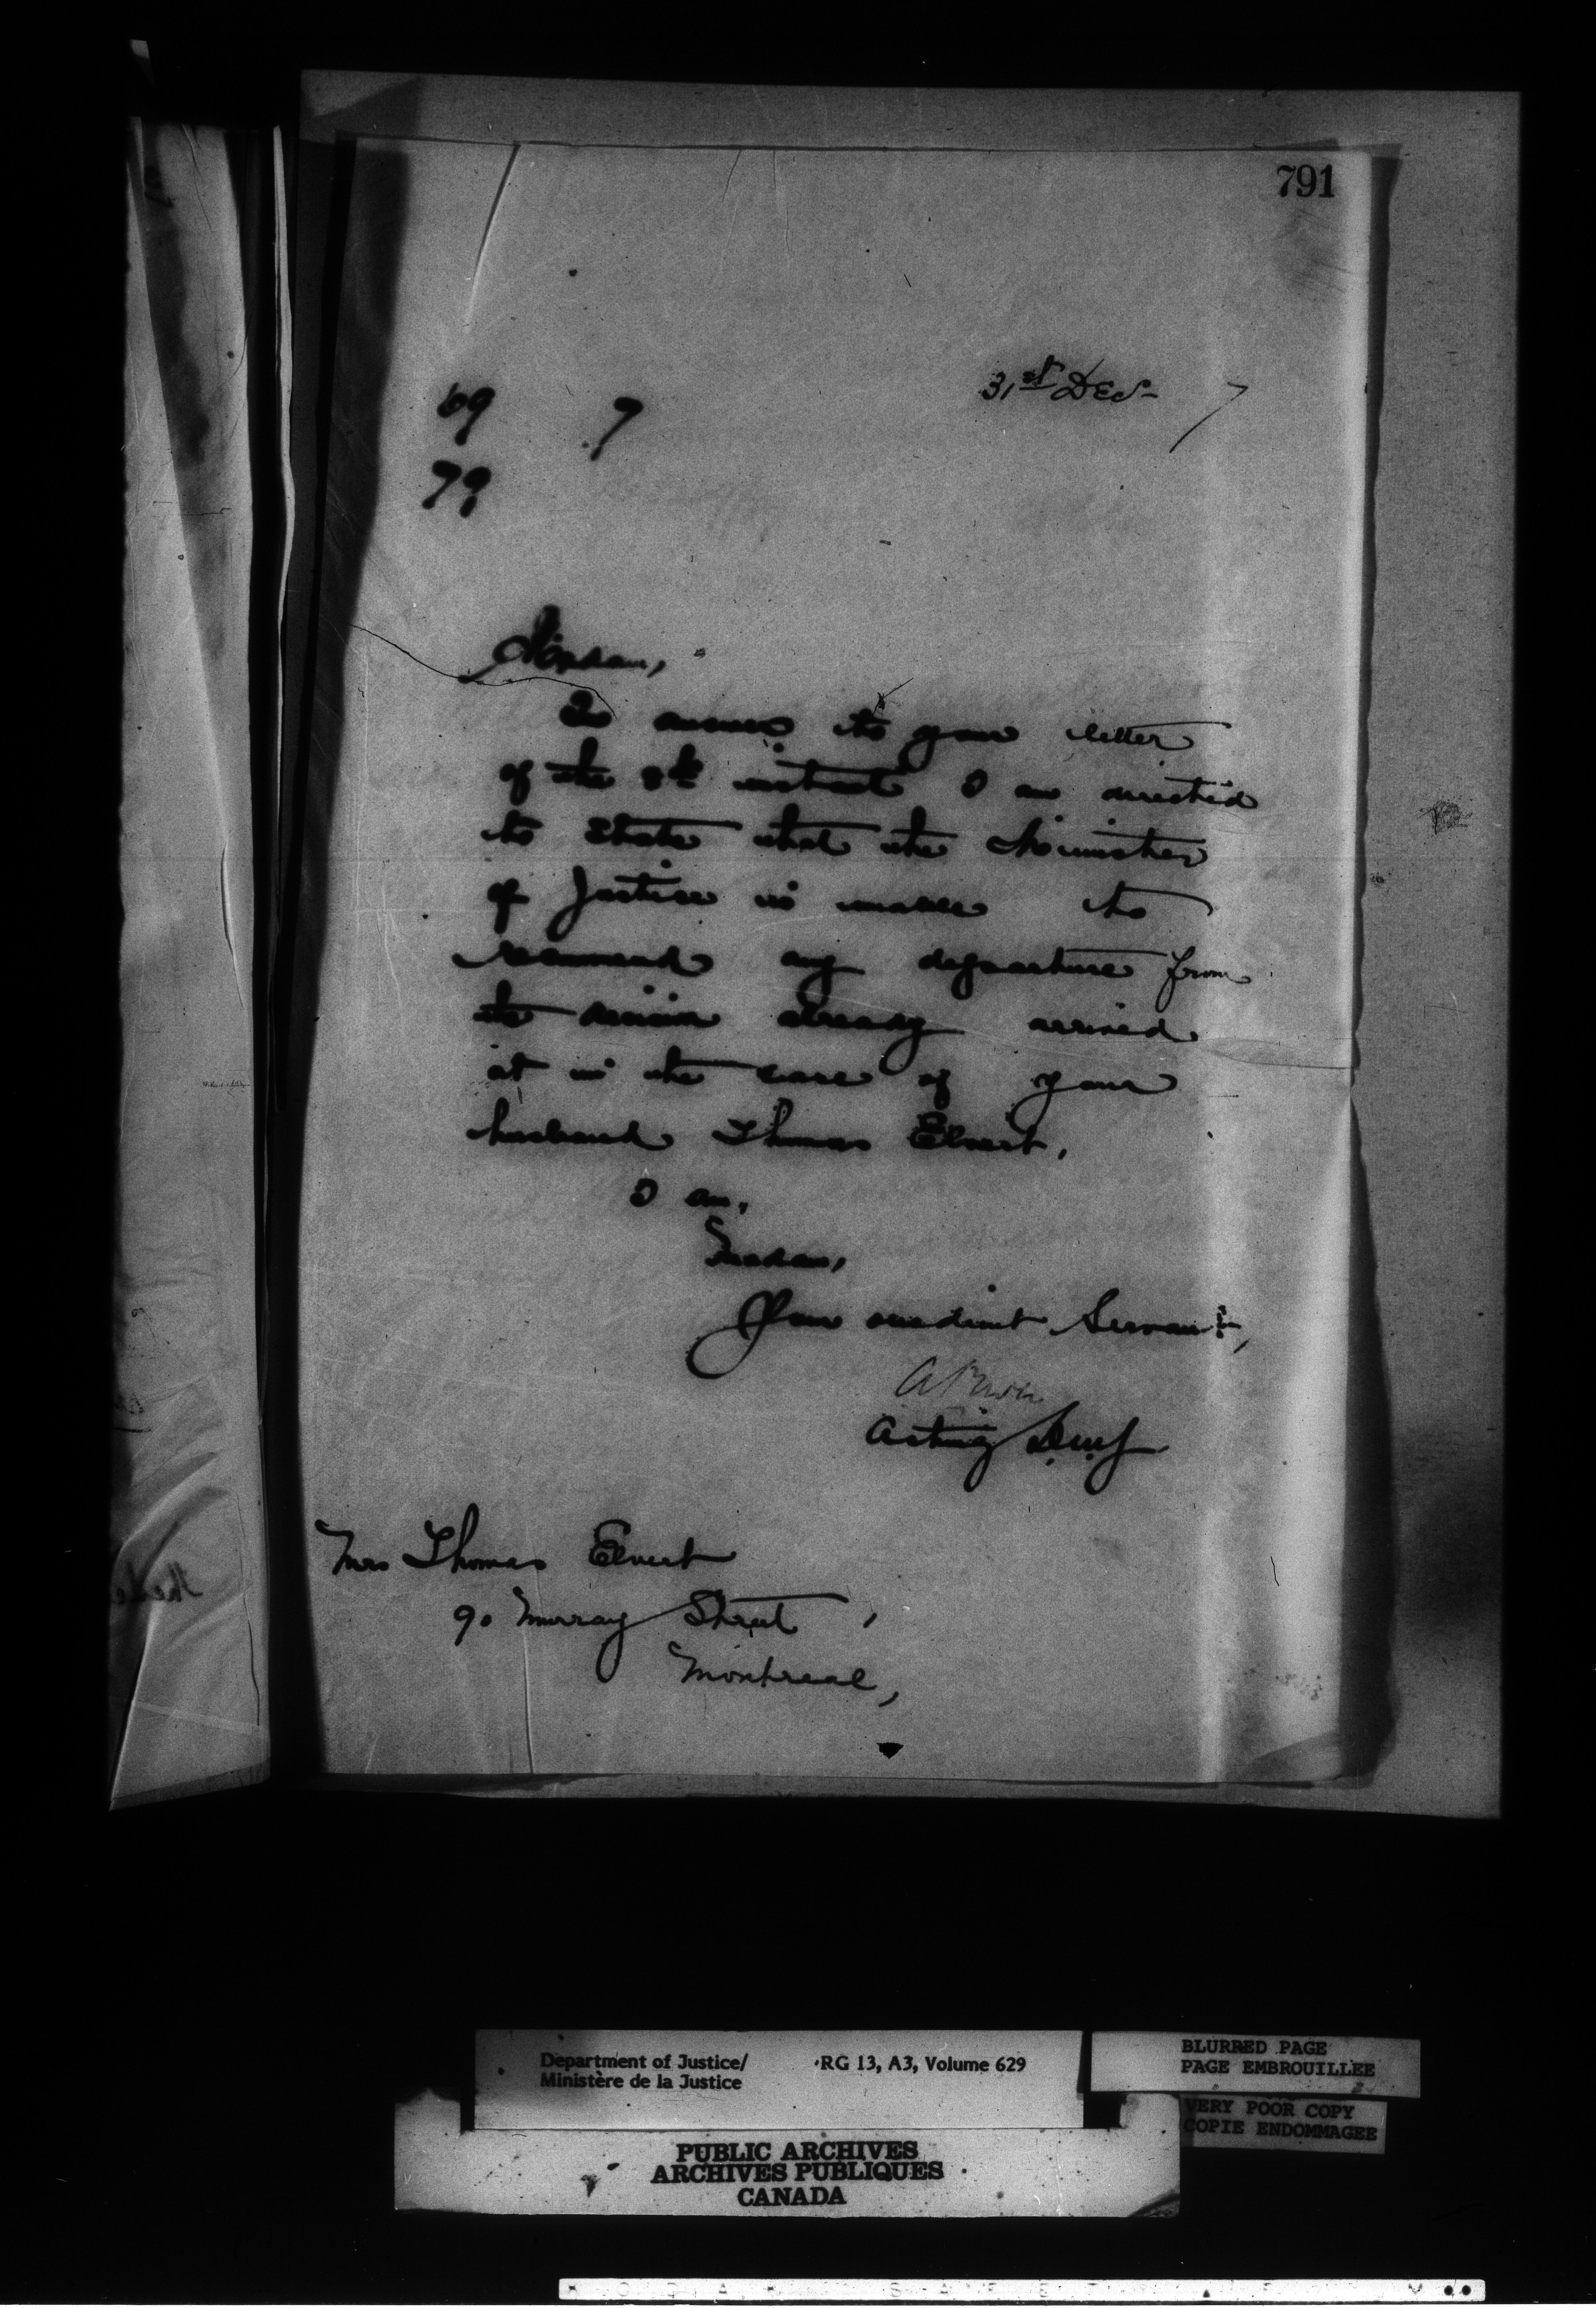 791
69 7 31st Dec- 7
79
Madam,
In answer to your letter
of the 8th instant I am directed
to state that the Minister
of Justice is unable to
recommend any departure from
the decision already arrived
at in the case of your
husband Thomas Elvert.
I am,
Madam,
Your obedient Servant,
A Power
Acting D.M.J
Mrs Thomas Elvert
90 Murray Street,
Montreal,
Department of Justice/ RG 13, A3, Volume 629
Ministère de la Justice
BLURRED PAGE
PAGE EMBROUILLEE
VERY POOR COPY
COPIE ENDOMMAGEE
PUBLIC ARCHIVES
ARCHIVES PUBLIQUES
CANADA